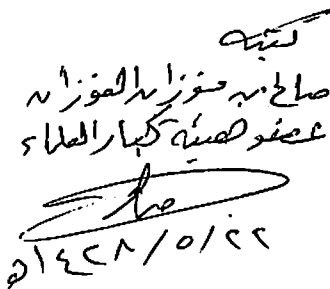 كتبه
صالح بن فوزان الفوزان
عضو هيئة كبار العلماء
صالح
١٤٢٨/٥/٢٢هـ